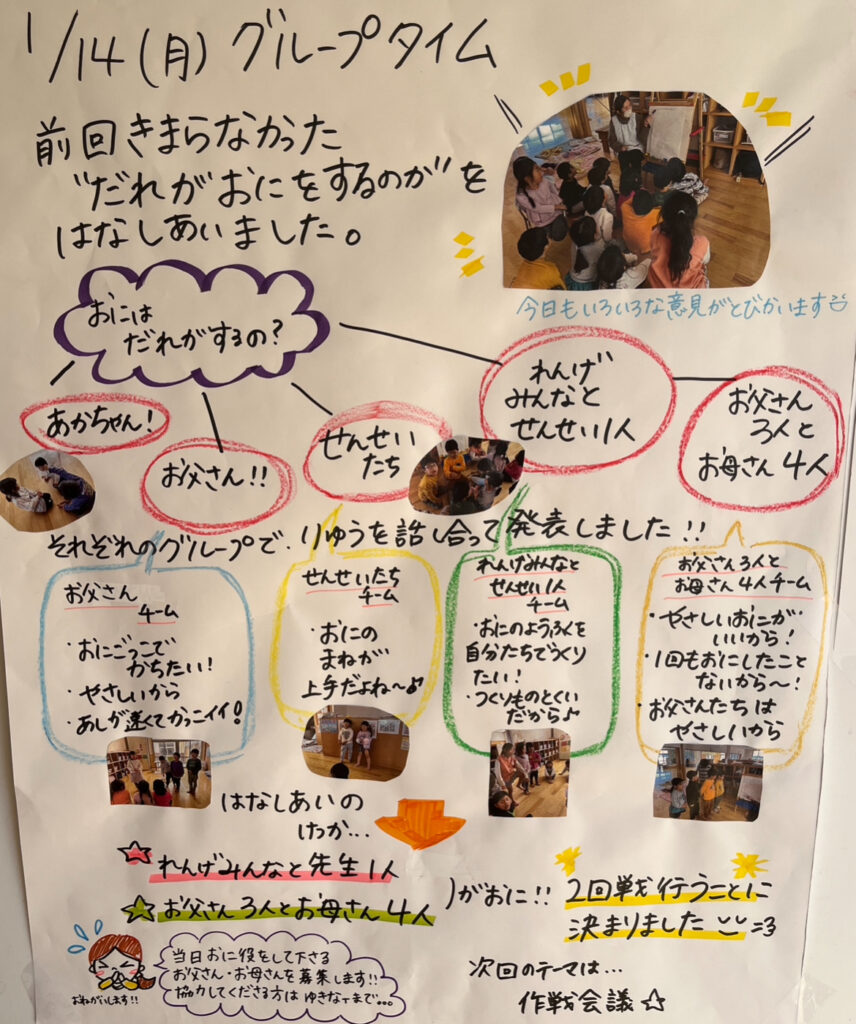 1/14(月) グループタイム
前回きまらなかった
"だれがおにをするのか"を
はなしあいました。
今日もいろいろな意見がとびかいます
おには
だれがするの?
あかちゃん!
お父さん!!
せんせい
たち
れんげ
みんなと
せんせい1人
お父さん
3人と
お母さん4人
それぞれのグループで、りゆうを話し合って発表しました!!
お父さん
チーム
・おにごっこで
かちたい!
・やさしいから
・あしが速くてかっこイイ!
せんせいたち
チーム
・おにの
まねが
上手だよね〜♪
れんげみんなと
せんせい1人
チーム
・おにのようふくを
自分たちでつくり
たい!
・つくりものとくい
だから♪
お父さん3人と
お母さん4人チーム
・やさしいおにが
いいから!
・1回もおにしたこと
ないから〜!
・お父さんたちは
やさしいから
はなしあいの
けっか...
☆れんげみんなと先生1人
☆お父さん3人とお母さん4人
)がおに!! 2回戦行うことに
決まりました
おねがいします!!
当日おに役をして下さる
お父さん・お母さんを募集します!!
協力してくださる方は ゆきなTまで...
次回のテーマは...
作戦会議☆